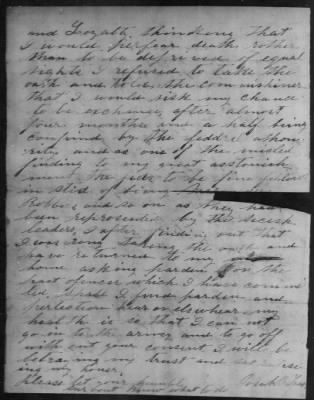 and Loyalt. thinking that
I would perfear death rother
than to be deprived of equal
rights I refused to take the
oath and tolde the comushiner
that I would risk my chance
to be exchange after almost
four months and a half being
confined by the feddral thou
rity and as one of the misled
finding to my great asstonish
ment the
in stid of
Rober, and so on as they had
been represented by the secesh
leaders, I after finding out that
I was rong taking the oath and
have returned to my
home asking pardin for the
past ofences which I have commi
ted. Shall I find pardin and
pertection hear or elswhear, my
health is so that I can not
go in to the army and to go off
with out your consent I will be
betraing my trust and
ing my honer.
please let your humble
dont know what to do